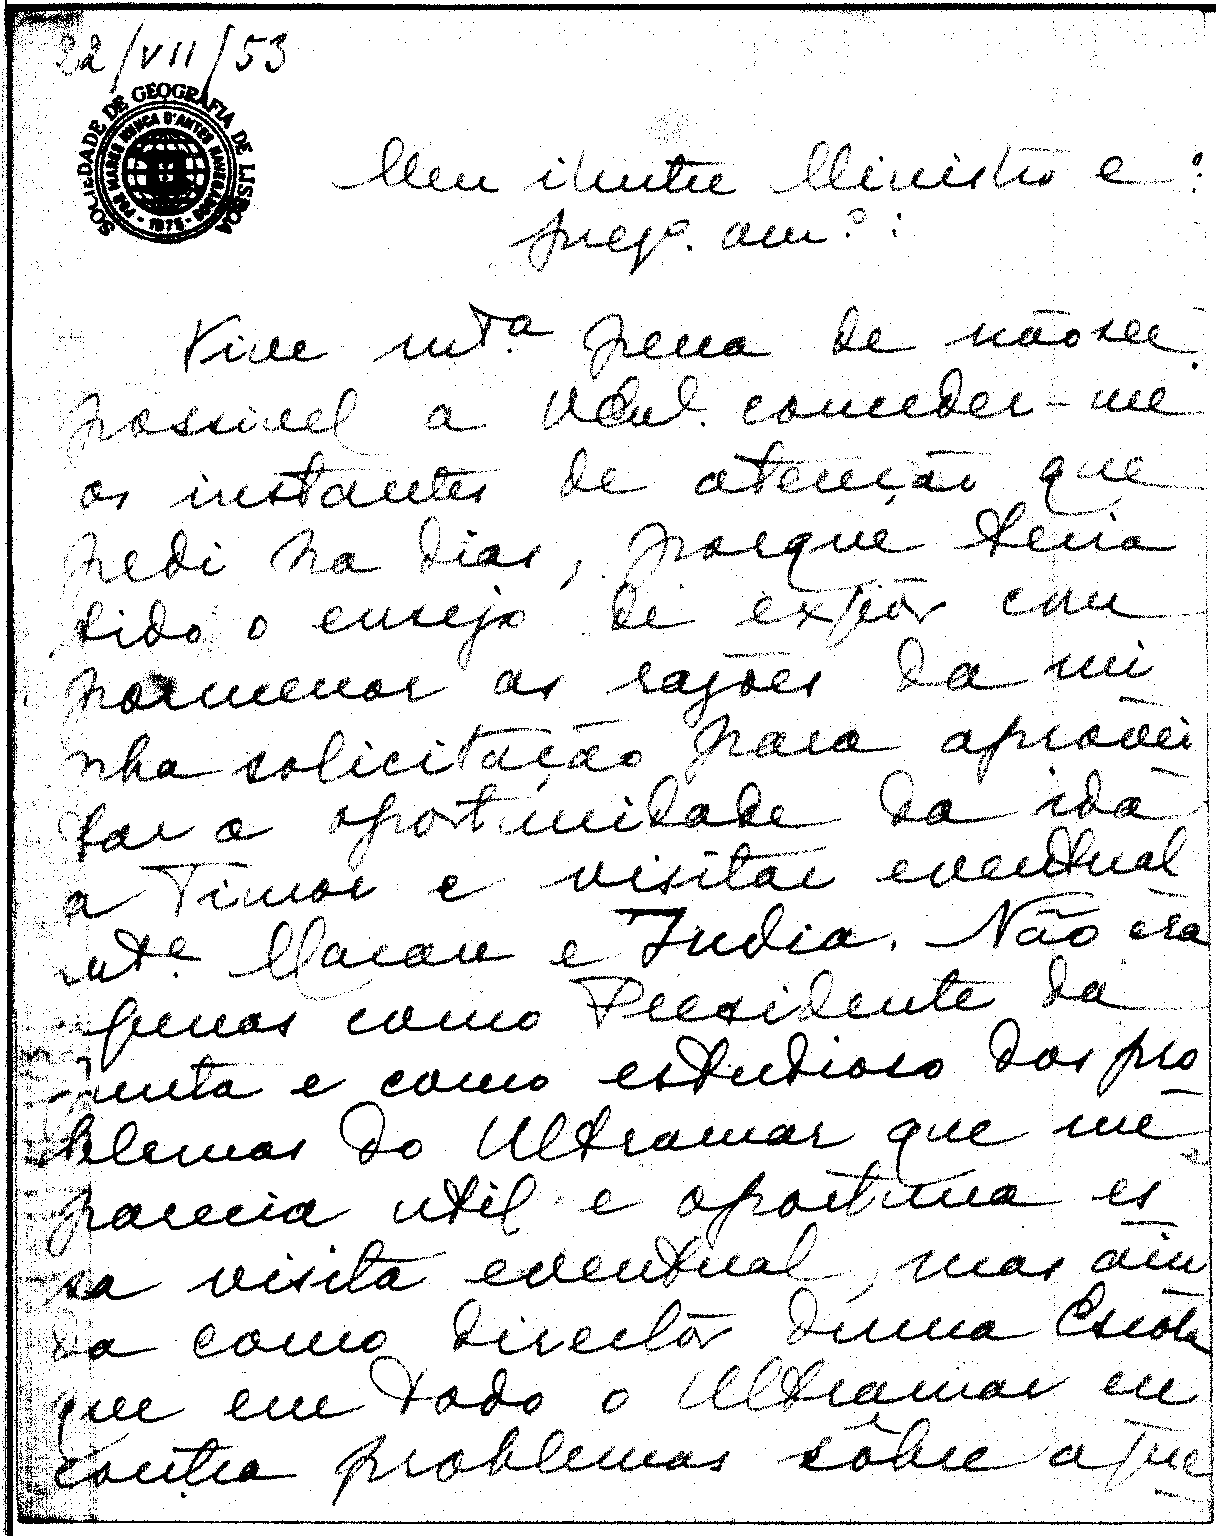 22/VII/53
SOCIEDADE DE GEOGRAFIA DE LISBOA
POR MARES NUNCA D'ANTES NAVEGADOS
- 1875 -
Meu ilustre Ministro e
prez.º am.º:
Tive mt.ª pena de não ser
possivel a V. Ex.ª conceder-me
os instantes de atenção que
pedi ha dias, porque teria
tido o ensejo de expôr com
pormenor as razões da mi
nha solicitação para aprovei
tar a oportunidade da ida
a Timor e visitar eventual
mt.e Macau e India. Não era
apenas como Presidente da
Junta e como estudioso dos pro
blemas do Ultramar que me
parecia util e oportuna es
sa visita eventual, mas ain
da como director duma Escola
que em todo o Ultramar en
contra problemas sôbre a